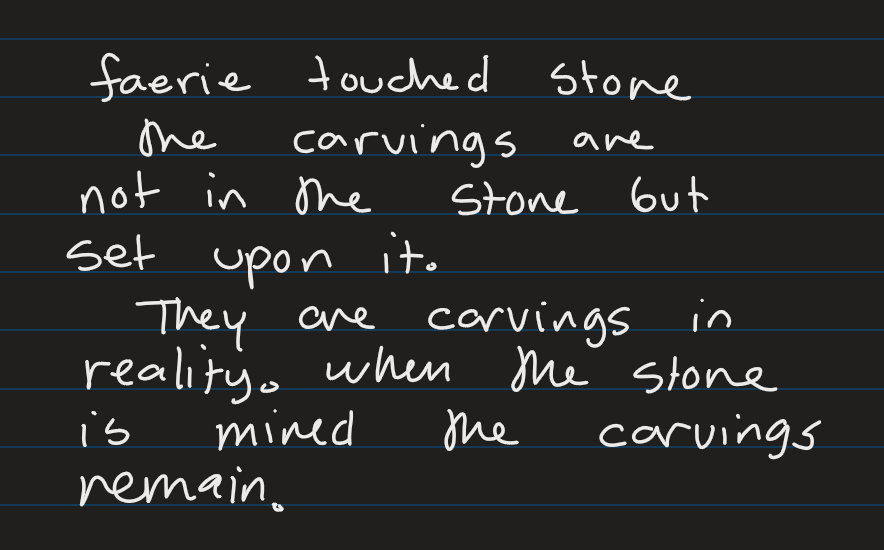 faerie touched stone
the carvings are
not in the stone but
set upon it.
They are carvings in
reality. when the stone
is mined the carvings
remain.